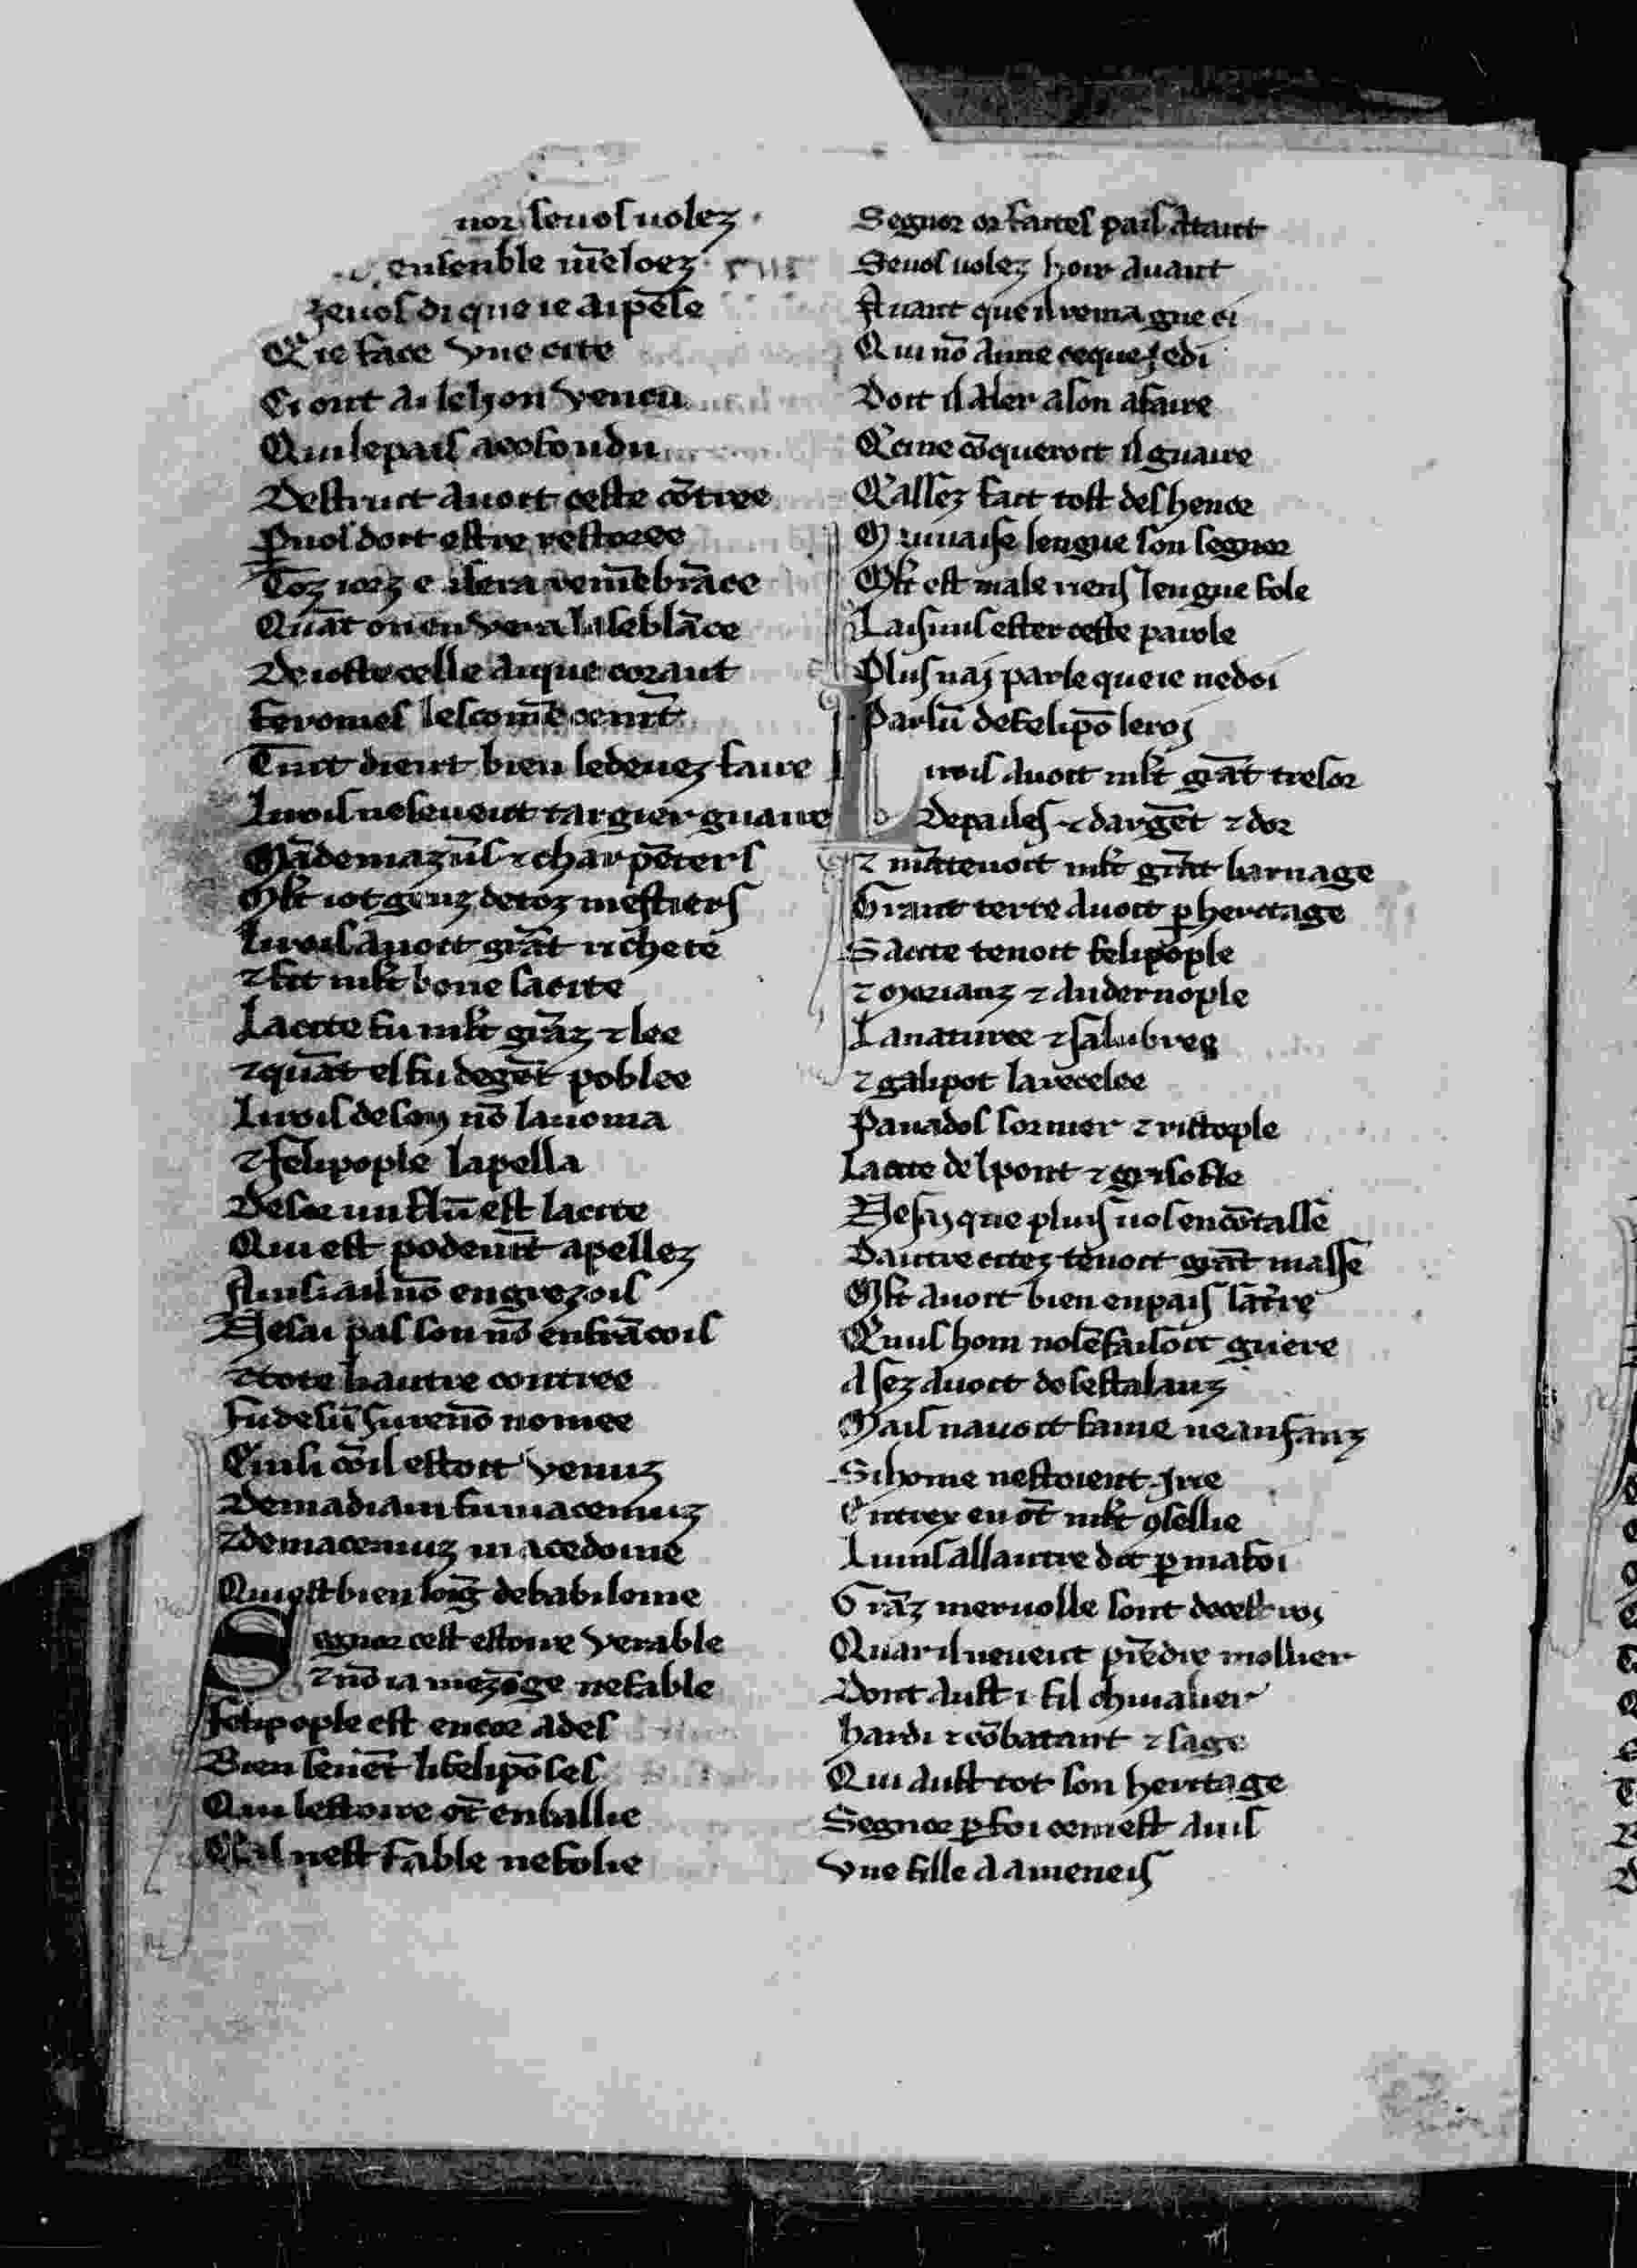 nor seuos uolez
ensenble m̄e loez
zeuos di que ie ai pēse
Q̄ ie face vne cite
Ci ont ai lehon vencu
Qui le pais a cofondu
Destruit auoit ceste cōtree
P̱ uos doit estre restoree
Toz iorz e isera remēbrāce
Quāt on en vera la sēblāce
De ioste celle aique corant
feromes les comēcemt̄
Tuit dient bien le deuez faire
Li rois ne se uout targier guaire
Māde mazūs ⁊ charpēters
Mlt̄ i ot genz de toz mestiers
Li rois auoit grāt richete
⁊ fit mlt̄ bone sa cite
La cite fu mlt̄ grāz ⁊ lee
⁊ quāt el fu de gēt poblee
Li rois de son nō la noma
⁊ felipople lapella
Desor un flū est la cite
Qui est podeurāt apellez
Ainsi ail nō en grezois
Ne sai pas son nō en frācois
⁊ tote lautre contree
fu de sū surenō nomee
Einsi cō il estoit venuz
De madian fu macemuz
⁊ de macemuz macedoine
Qui est bien loiḡ de babiloine
Segnor cest estoire verable
⁊ nō ia mezōge ne fable
felipople est encor ades
Bien seuēt li felipōses
Qui lestoire ōt en ballie
Q̄ il nest fable ne folie
Segnor or faites pais atant
Seuos uolez hoir auant
Auant que il remaigne ci
Qui nō aime ce que ie di
Doit il aler a son afaire
Q̄ ci ne cōqueroit il guaire
Q̄ assez fait tost deshenor
Mauuaise lengue son segnor
Mlt̄ est male riens lengue fole
Laisiuis ester ceste parole
Plus nai parle que ie ne doi
Parlū de felipō le roi
Li rois auoit mlt̄ grāt tresor
De pailes ⁊ dargēt ⁊ dor
⁊ māteuoit mlt̄ grāt barnage
Grant terre auoit p̱ heritage
Sa cite tenoit felipople
⁊ morianz ⁊ andernople
La naturee ⁊ salubree
⁊ galipot la recelee
Panados sormer ⁊ ristople
La cite del pont ⁊ grisofle
Ne sai que pluis uos en cōtasse
Dautre citez tenoit grāt masse
Mlt̄ auoit bien en pais sa t̄re
Q̄ nuls hom no lē faisoit guere
Asez auoit de ses talanz
Mais nauoit fame ne anfanz
Si home nestoient irie
Entrex en ōt mlt̄ ꝯsellie
Li uns all autre dit p̱ ma foi
Grāz meruolle sont de cest roi
Quar il ne ueut prēdre mollier
Dont aust ı fil chiualier
Hardi ⁊ cōbatant ⁊ sage
Qui aust tot son heritage
Segnor p̱ foi ce mest auis
Vne fille a ameneis